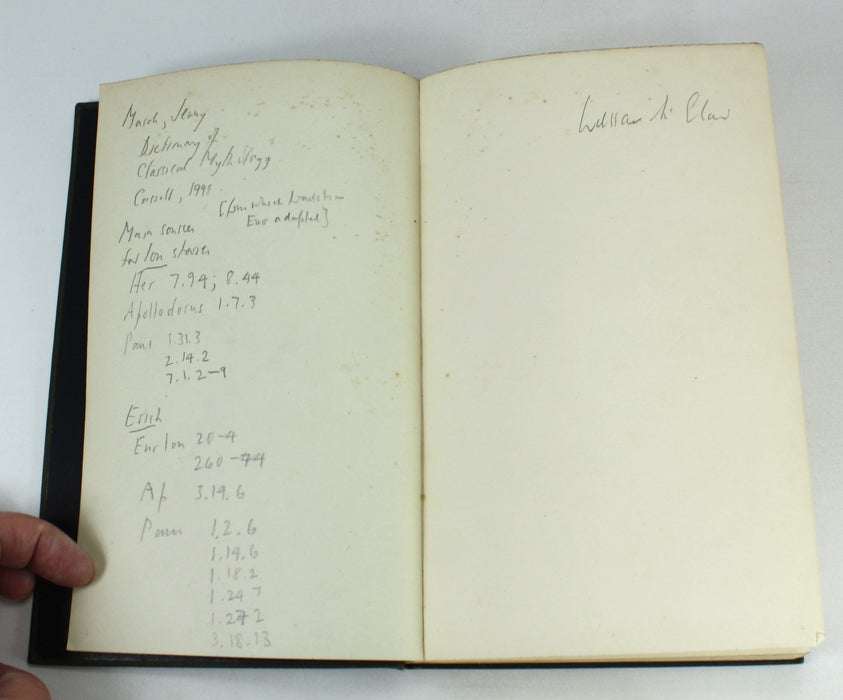 March, Jenny
Dictionary of
Classical Mythology
Cassell, 1998
[from which
Eur adapted]
Main sources
for Ion stories
Her 7.94; 8.44
Apollodorus 1.7.3
Paus 1.31.3
2.14.2
7.1.2-9
Erich
Eur Ion 20-4
260-74
Ap 3.14.6
Paus 1.2.6
1.14.6
1.18.2
1.24 7
1.27 2
3.18.13
William